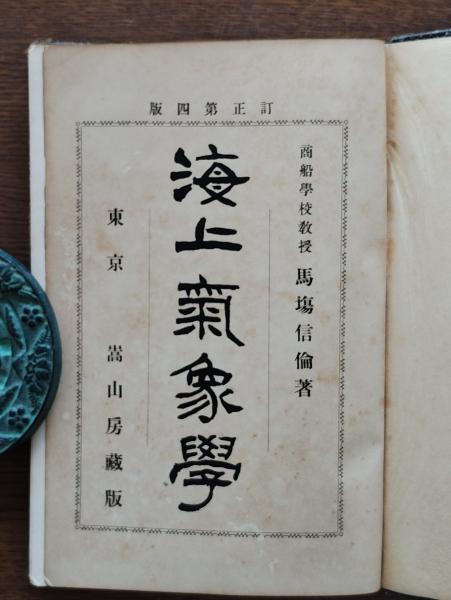 訂正第四版
商船學校教授 馬塲信倫著
海上氣象學
東京 嵩山房藏版